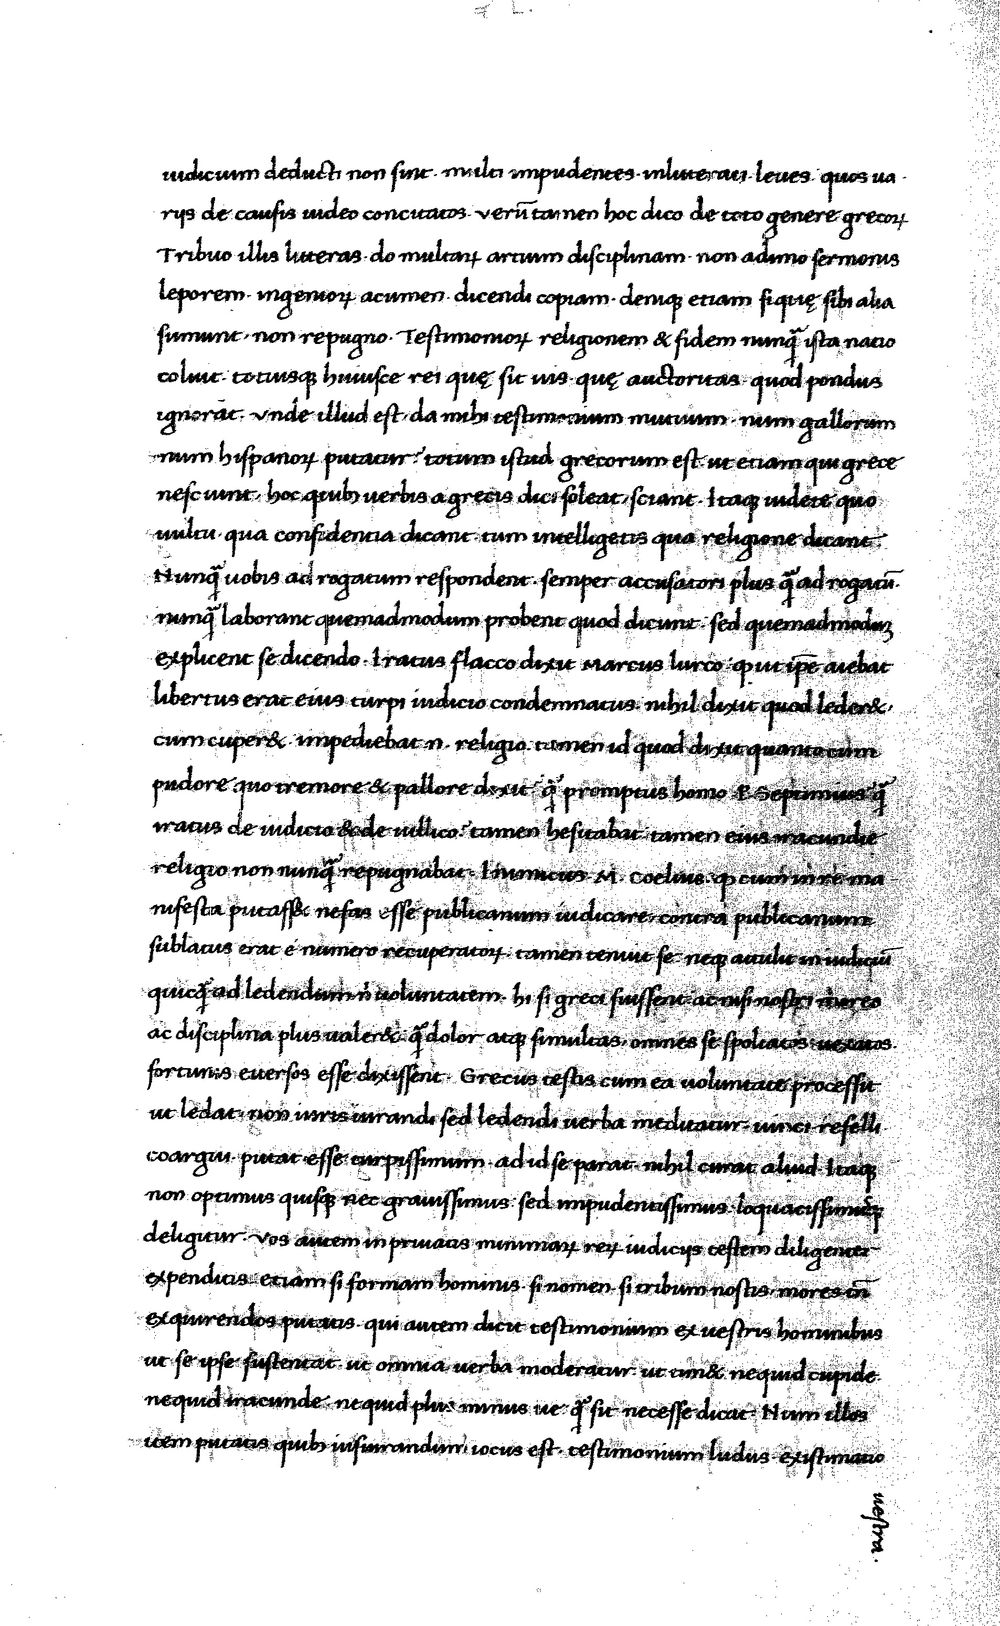 iudicium deducti non sint · multi impudentes · inliterati · leues · quos ua ·
rijs de causis uideo concitatos · verū tamen hoc dico de toto genere grecoꝝ
Tribuo illis literas · do multaꝝ artium disciplinam · non adimo sermonis
leporem · ingenioꝝ acumen · dicendi copiam · deniqꝫ etiam si quę sibi alia
sumunt · non repugno · Testimonioꝝ religionem & fidem nunq̃ ista natio
coluit · totiusqꝫ huiusce rei quę sit uis · quę auctoritas · quod pondus
ignorat · vnde illud est · da mihi testimonium mutuum · num gallorum
num hispanoꝝ putatur? totum istud grecorum est · ut etiam qui grece
nesciunt · hoc quibꝫ uerbis a grecis dici soleat · sciant · Itaqꝫ uidete quo
uultu · qua confidentia dicant · tum intelligetis qua religione dicant ·
Nunq̃ uobis ad rogatum respondent · semper accusatori plus q̃ ad rogatū ·
nunq̃ laborant quemadmodum probent quod dicunt · sed quemadmodūꝫ
explicent se dicendo · Iratus flacco dixit Marcus lurco · ꝙ ut ip̄e aiebat
libertus erat eius turpi iudicio condemnatus · nihil dixit quod leder& ·
cum cuper& · impediebat n · religio · tamen id quod dixit quanto cum
pudore quo tremore & pallore dixit · q̃ promptus homo P. Septimius q̃
iratus de iudicio & de uillico? tamen hesitabat · tamen eius iracundie
religio non nunq̃ repugnabat · Inimicus M. Coelius · ꝙ cum in re ma
nifesta putass& nefas esse publicanum iudicare contra publicanum
sublatus erat e numero recuperatoꝝ · tamen tenuit se · neqꝫ attulit in iudiciū
quicq̃ ad ledendum ñ uoluntatem · hi si greci fuissent ac nisi nostri mores
ac disciplina plus ualer& · q̃ dolor atqꝫ simultas · omnes se spoliatos · uexatos ·
fortunis euersos esse dixissent · Grecus testis cum ea uoluntate processit
ut ledat · non iuris iurandi sed ledendi uerba meditatur · uinci · refelli
coargui · putat esse turpissimum · ad id se parat · nihil curat aliud · Itaqꝫ
non optimus quisqꝫ nec grauissimus · sed impudentissimus loquacissimusqꝫ
deligitur · Vos autem in priuatis minimaꝝ reꝝ iudicijs testem diligenter
expenditis · etiam si formam hominis · si nomen · si tribum nostis · mores tn̄
exquirendos putatis · qui autem dicit testimonium ex uestris hominibus
ut se ipse sustentat · ut omnia uerba moderatur · ut tim& nequid cupide ·
nequid iracunde · nequid plus minus ue q̃ sit necesse dicat · Num illos
item putatis quibꝫ iusiurandum iocus est · testimonium ludus · existimatio
uestra ·